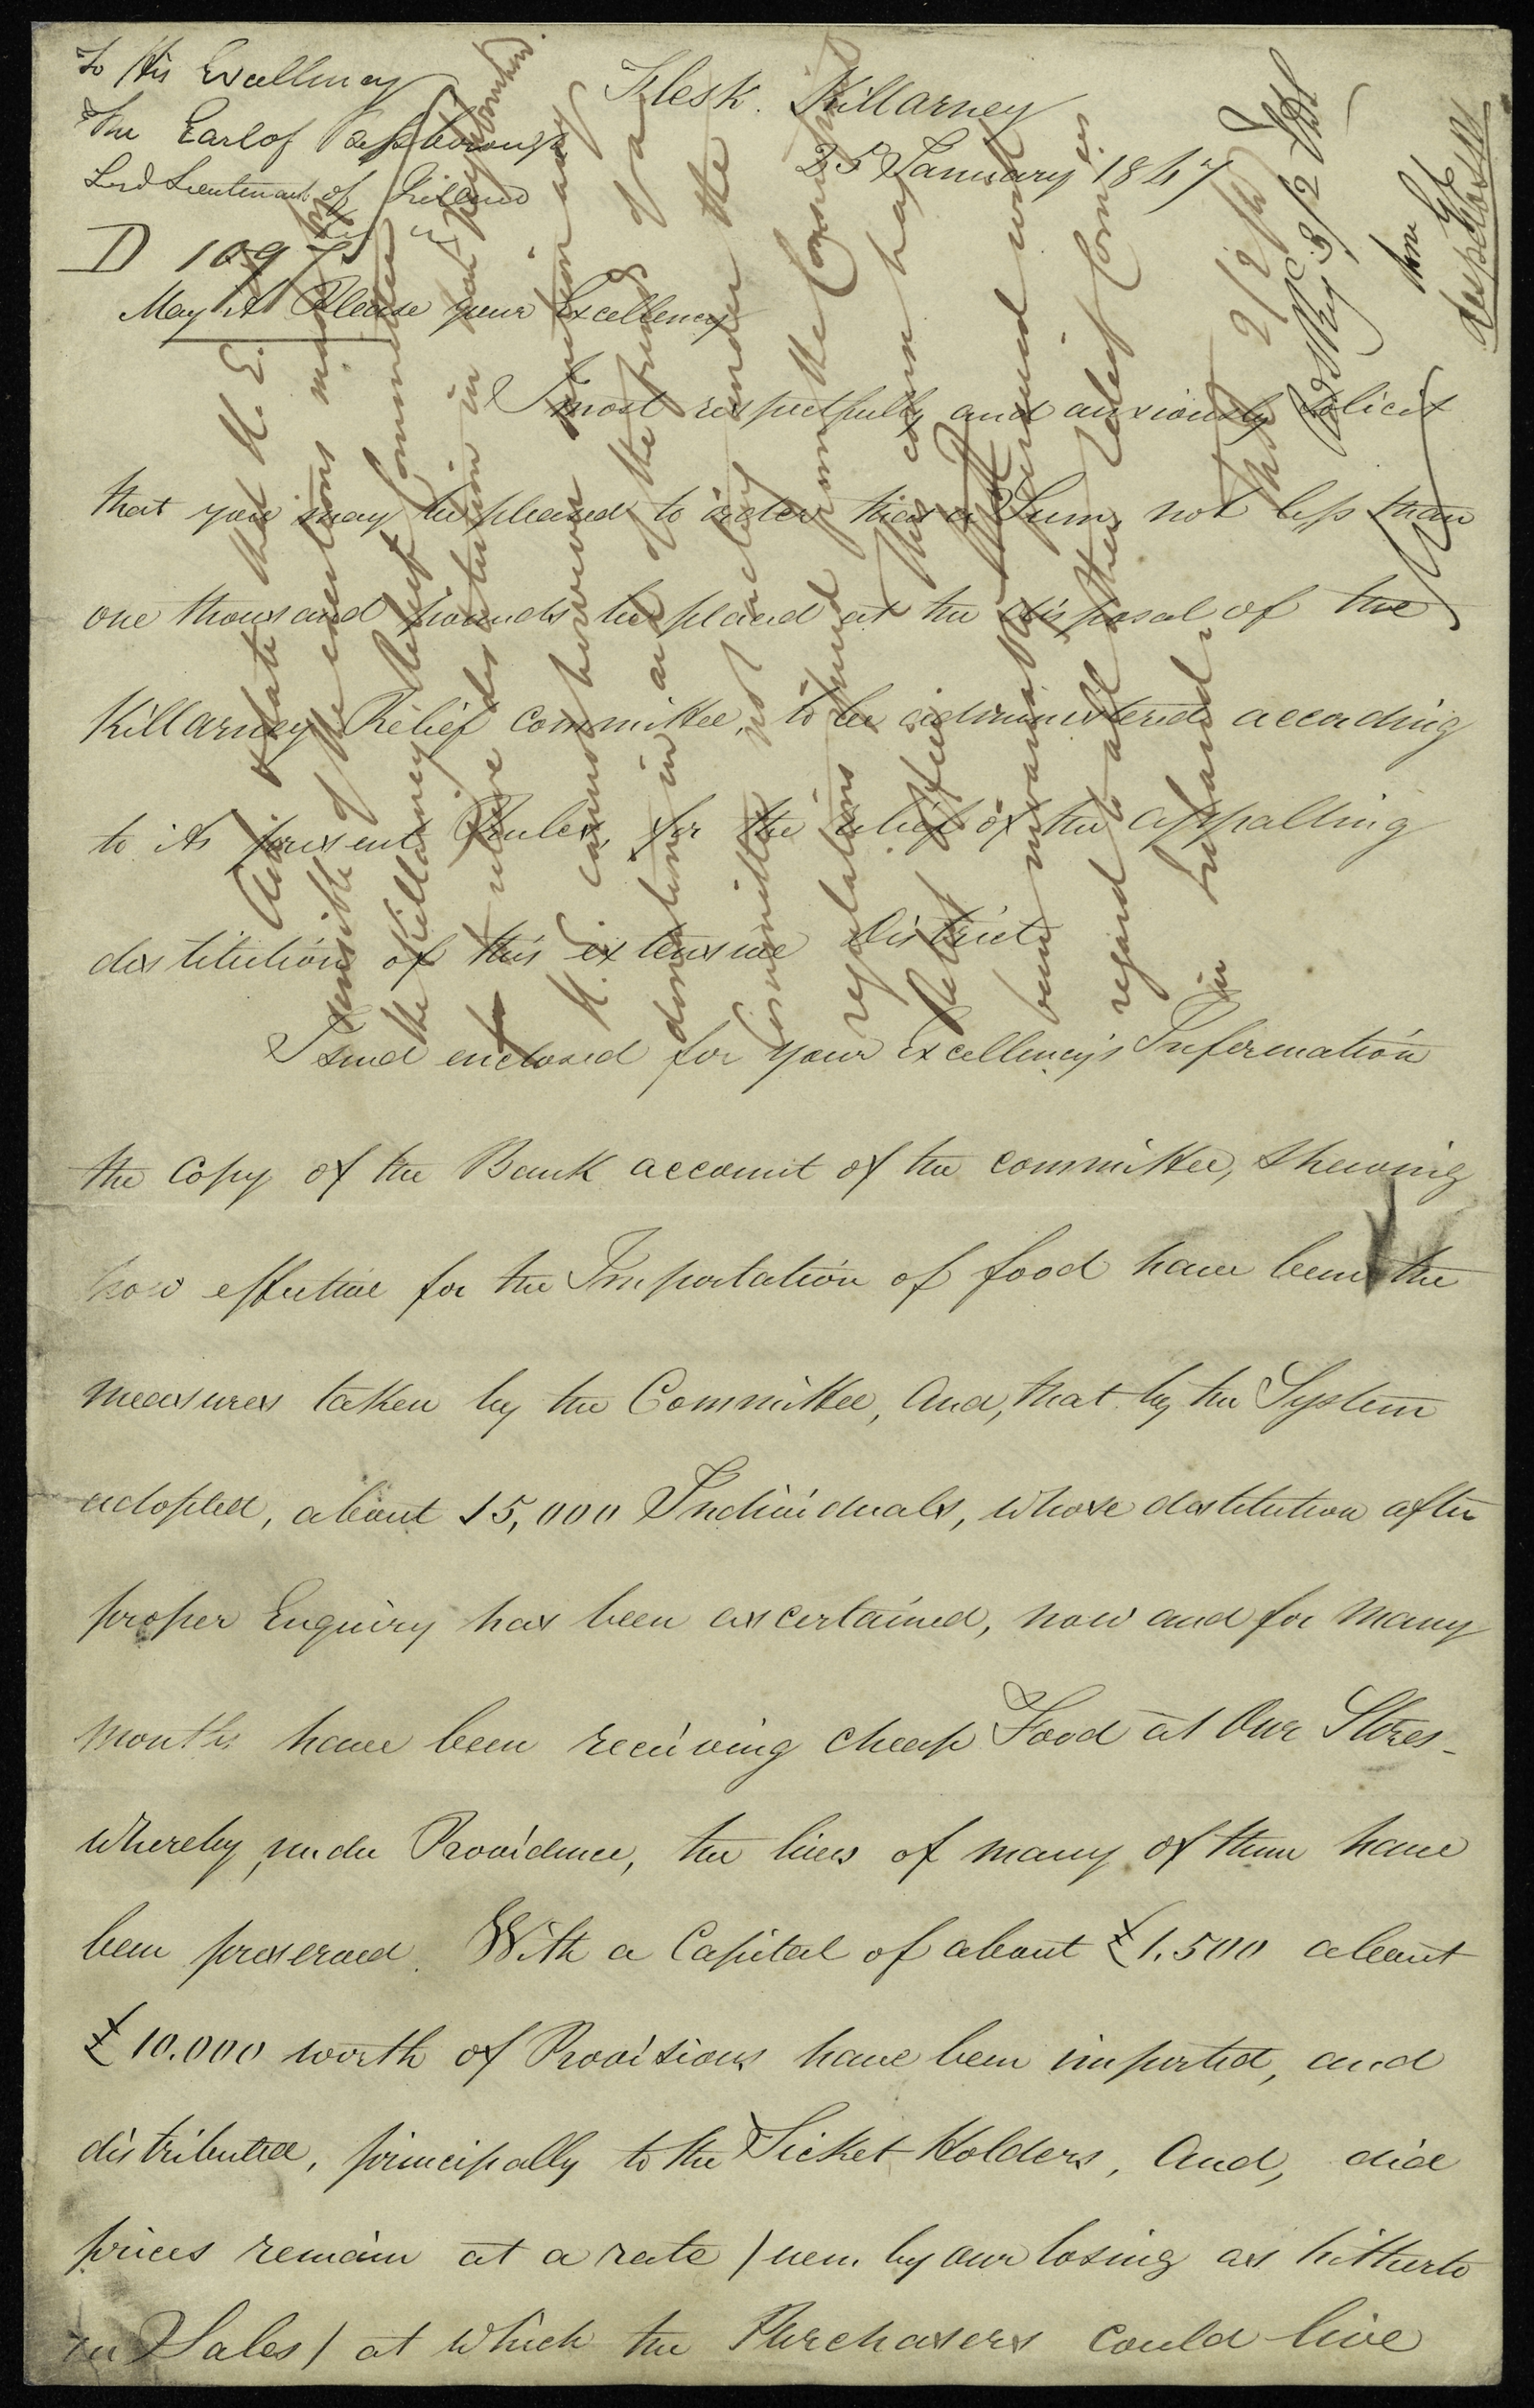 To His Excellency
The Earl of Bessborough
Lord Lieutenant of Ireland
Flesk. Killarney
25 January 1847
D 1097
May it Please your Excellency
I most respectfully and anxiously solicit
that you may be pleased to order that a Sum, not less than
one thousand pounds be placed at the disposal of the
Killarney Relief committee, to be administered according
to its present Rules, for the relief of the appalling
destitution of this extensive District
I send enclosed for your Excellency's Information
the Copy of the Bank account of the committee, shewing
how effective for the Importation of food have been the
measures taken by the Committee, And, that by the System
adopted, about 15,000 Individuals, whose destitution after
proper Enquiry has been ascertained, now and for many
months have been receiving cheap Food at Our Stores -
whereby, under Providence, the lives of many of them have
been preserved. With a Capital of about £1.500 about
£10.000 worth of Provisions have been imported, and
distributed, principally to the Ticket Holders, And, did
prices remain at a rate (even by our losing as hitherto
in Sales) at which the Purchasers could live
state that H. E.
sensible of the exertions made by
the Killarney Relief Committee
to relieve destitution in that neighbourhood.
H. E. cannot however sanction any
donation in aid of the funds of a
Committee not acting under the
regulations issued from the Commissariat
Relief Office. This course having
been invariably pursued with
regard to all other Relief Committees
in Ireland.
2/2/47
3/2